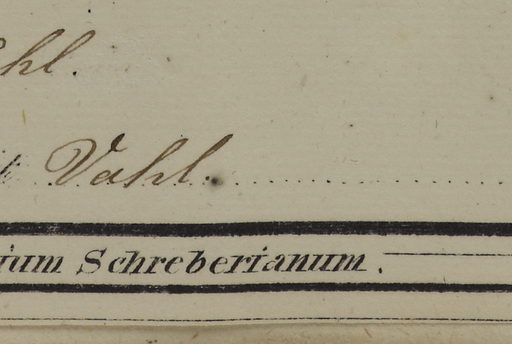 Vahl.
ium Schreberianum.